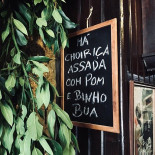 HÁ
CHOIRIÇA
ASSADA
COM POM
E BINHO
BUA